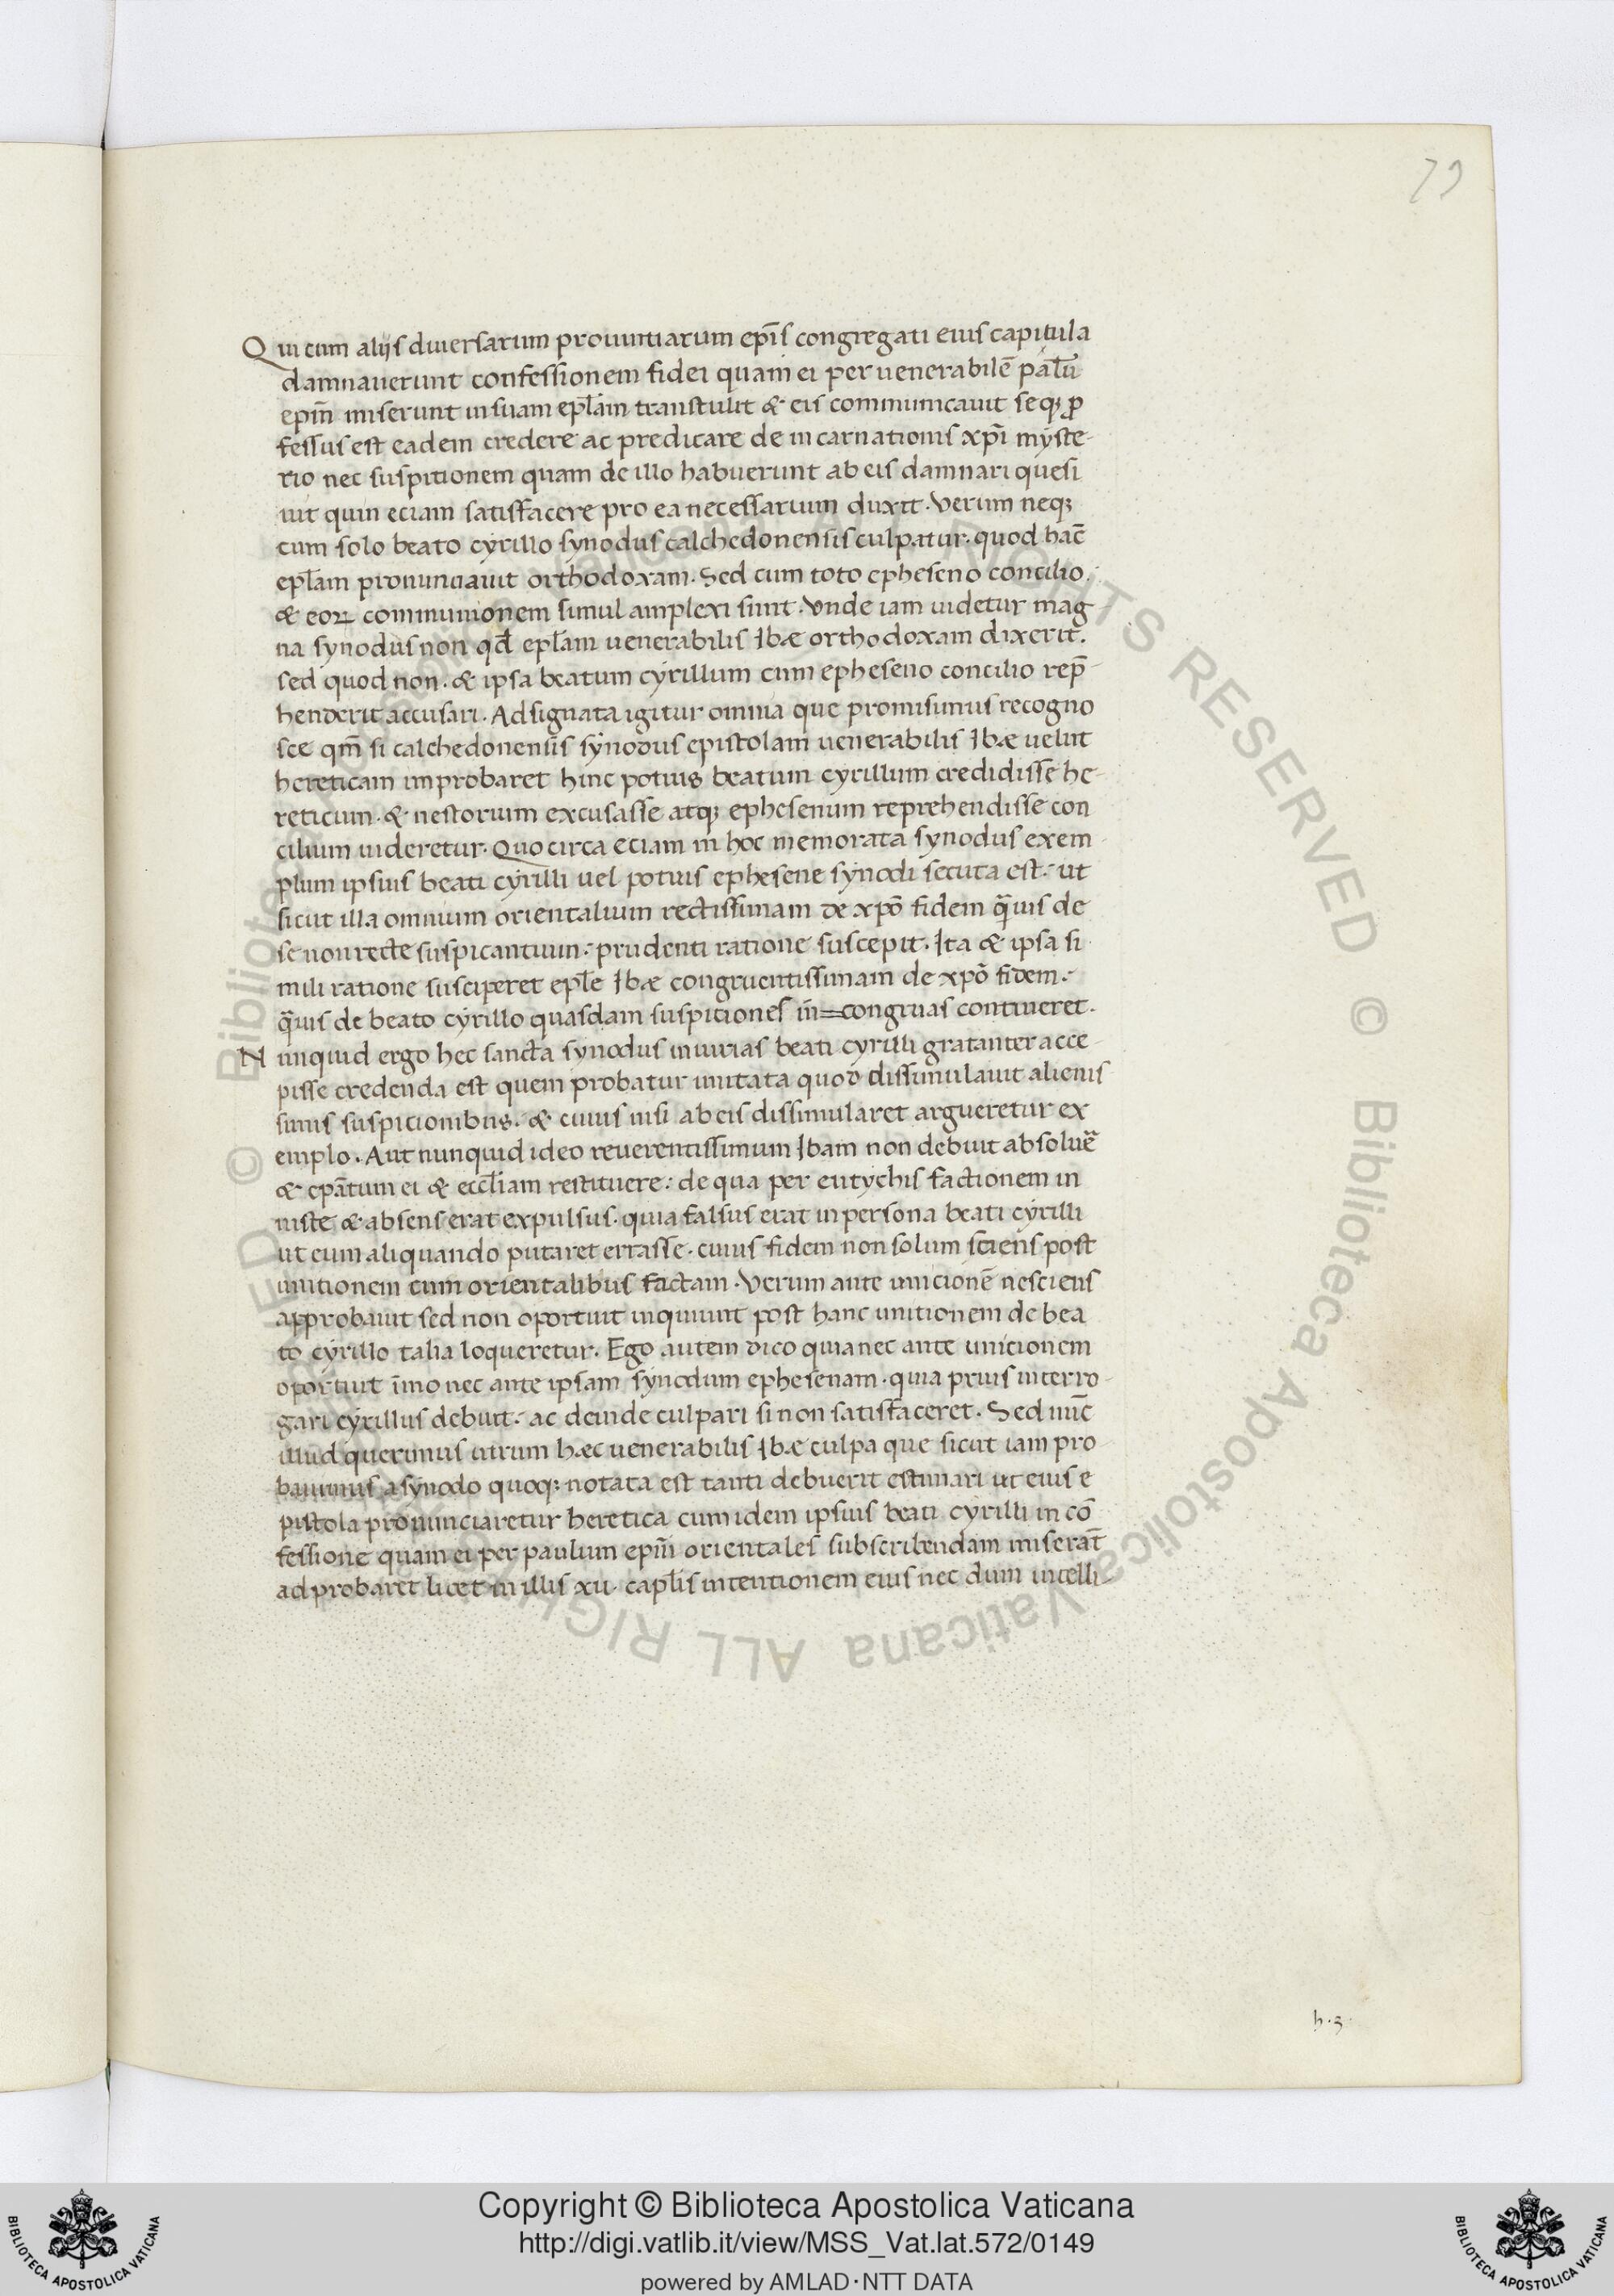 79
Qui cum aliis diuersarum prouintiarum ep̄is congregati eius capitula
damnauerunt confessionem fidei quam ei per uenerabilē pal̄ū
ep̄m miserunt in suam ep̄lam transtulit & eis communicauit seqꝫ ꝓ
fessus est eadem credere ac predicare de incarnationis xp̄i myste-
rio nec suspitionem quam de illo habuerunt ab eis damnari quesi
uit quin eciam satisfacere pro ea necessarium duxit. Verum neqꝫ
cum solo beato cyrillo synodus calchedonensis culpatur. quod hāc
ep̄lam pronunciauit orthodoxam. Sed cum toto epheseno concilio.
& eoꝝ communionem simul amplexi sunt. Vnde iam uidetur mag-
na synodus non qd̄ ep̄lam uenerabilis Ibæ orthodoxam dixerit.
sed quod non. & ipsa beatum cyrillum cum epheseno concilio rep̄-
henderit accusari. Adsignata igitur omnia que promisimus recogno
sce qm̄ si calchedonensis synodus epistolam uenerabilis Ibæ uelut
hereticam improbaret hinc potius beatum cyrillum credidisse he-
reticum. & nestorium excusasse atqꝫ ephesenum reprehendisse con
cilium uideretur. Quocirca eciam in hoc memorata synodus exem-
plum ipsius beati cyrilli uel potius ephesene synodi secuta est: ut
sicut illa omnium orientalium rectissimam de xp̄o fidem q̄uis de
se non recte suspicantium: prudenti ratione suscepit. Ita & ipsa si
mili ratione susciperet ep̄le Ibæ congruentissimam de xp̄o fidem:
q̄uis de beato cyrillo quasdam suspiciones in=congruas contineret.
Nunquid ergo hec sancta synodus iniurias beati cyrilli gratanter acce-
pisse credenda est quem probatur imitata quod dissimulauit alienis
simis suspicionibus. & cuius nisi ab eis dissimularet argueretur ex
emplo. Aut nunquid ideo reuerentissimum Ibam non debuit absoluē
& ep̄atum ei & eccl̄iam restituere: de qua per eutychis factionem in
iuste & absens erat expulsus. quia falsus erat in persona beati cyrilli
ut eum aliquando putaret errasse. cuius fidem non solum sciens post
unitionem cum orientalibus factam. Verum ante unicionē nesciens
approbauit sed non oportuit inquiunt post hanc unitionem de bea
to cyrillo talia loqueretur. Ego autem dico quia nec ante unicionem
oportuit īmo nec ante ipsam synodum ephesenam. quia prius interro-
gari cyrillus debuit: ac deinde culpari si non satisfaceret. Sed nūc
illud querimus utrum hæc uenerabilis Ibæ culpa que sicut iam pro-
bauimus a synodo quoqꝫ notata est tanti debuerit estimari ut eius e
pistola pronunciaretur heretica cum idem ipsius beati cyrilli in cō
fessione quam ei per paulum ep̄m orientales subscribendam miserāt
adprobaret licet in illis xii. capl̄is intentionem eius nec dum intelli-
h.3.
© Biblioteca Apostolica Vaticana ALL RIGHTS RESERVED © Biblioteca Apostolica Vaticana ALL RIGHTS RESERVED
Copyright © Biblioteca Apostolica Vaticana
http://digi.vatlib.it/view/MSS_Vat.lat.572/0149
powered by AMLAD·NTT DATA
BIBLIOTECA APOSTOLICA VATICANA
BIBLIOTECA APOSTOLICA VATICANA